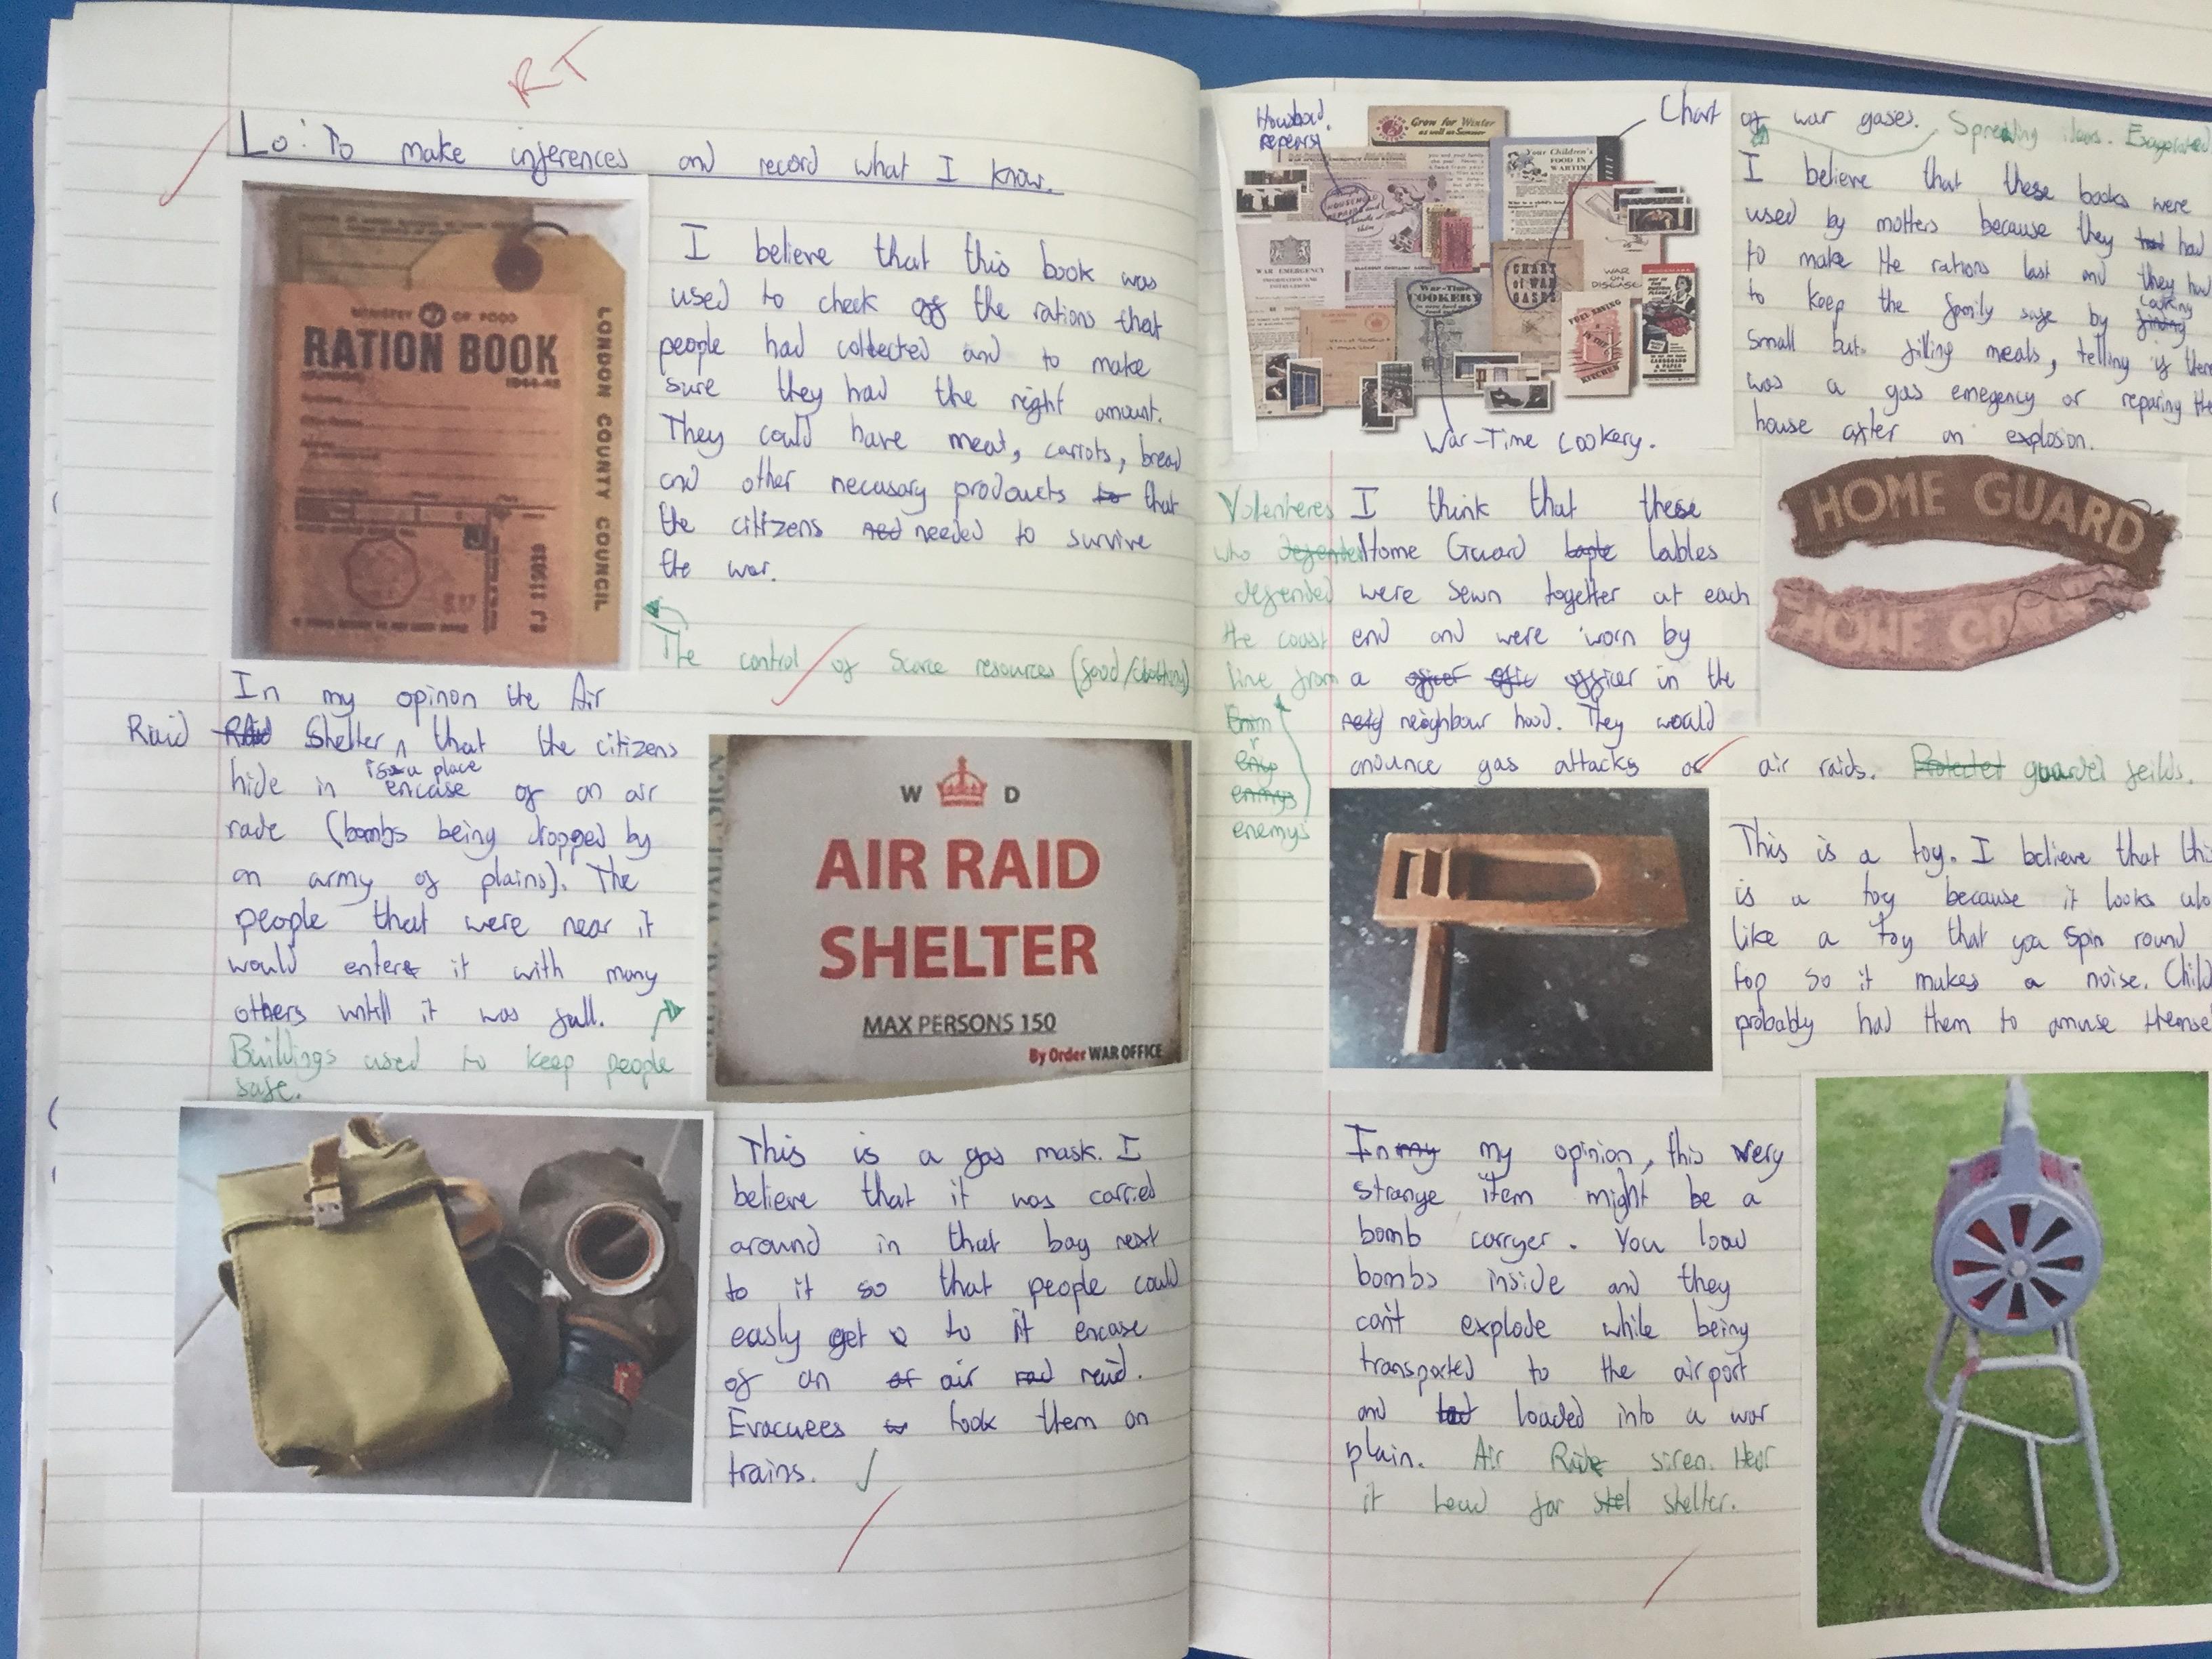 RT
Lo: To make inferences and record what I know.
MINISTRY OF FOOD
RATION BOOK
1944-45
LONDON COUNTY COUNCIL
I believe that this book was
used to check off the rations that
people had collected and to make
sure they had the right amount.
They could have meat, carrots, bread
and other necusary products to that
the citizens ned needed to survive
the war.
The control of Scarce resources (food/clothing)
In my opinon the Air
Raid Shelter that the citizens
is a place
hide in encase of an air
rade (bombs being dropped by
an army of plains). The
people that were near it
would enter it with many
others untill it was full.
Buildings used to keep people
safe.
W D
AIR RAID
SHELTER
MAX PERSONS 150
By Order WAR OFFICE
This is a gas mask. I
believe that it was carried
around in that bag next
to it so that people could
easly get to it encase
of an of air rad raid.
Evacuees took them on
trains.
Houshord
repersy
Chart of war gases.
Spreading ideas.
Grow for Winter
as well as Summer
Your Children's
FOOD IN
WARTIME
HOUSEHOLD
WAR EMERGENCY
INFORMATION AND
INSTRUCTIONS
War-Time
COOKERY
CHART
of WAR
GASES
WAR
ON
DISEASE
FUEL SAVING
IN THE
KITCHEN
War-Time Cookery.
I believe that these books were
used by motters because they had had
to make the rations last and they had
to keep the family safe by
cooking
small but filling meals, telling if ther
was a gas emegency or reparing the
house after an explosion.
HOME GUARD
HOME GUARD
Volenteres
who defended
defended
the coast
line from
enemys
enemys
I think that these
Home Guard lables
were sewn together at each
end and were worn by
a officer offic officer in the
neig neighbour hood. They would
anounce gas attacks or air raids. Protected guarded feilds.
This is a toy. I believe that this
is a toy because it looks alo
like a toy that you spin round
top so it makes a noise. Child
probably had them to amuse themsel
In my my opinion, this very
strange item might be a
bomb carryer. You load
bombs inside and they
can't explode while being
transported to the airport
and loaded into a war
plain. Air Ride siren. Hear
it head for shel shelter.